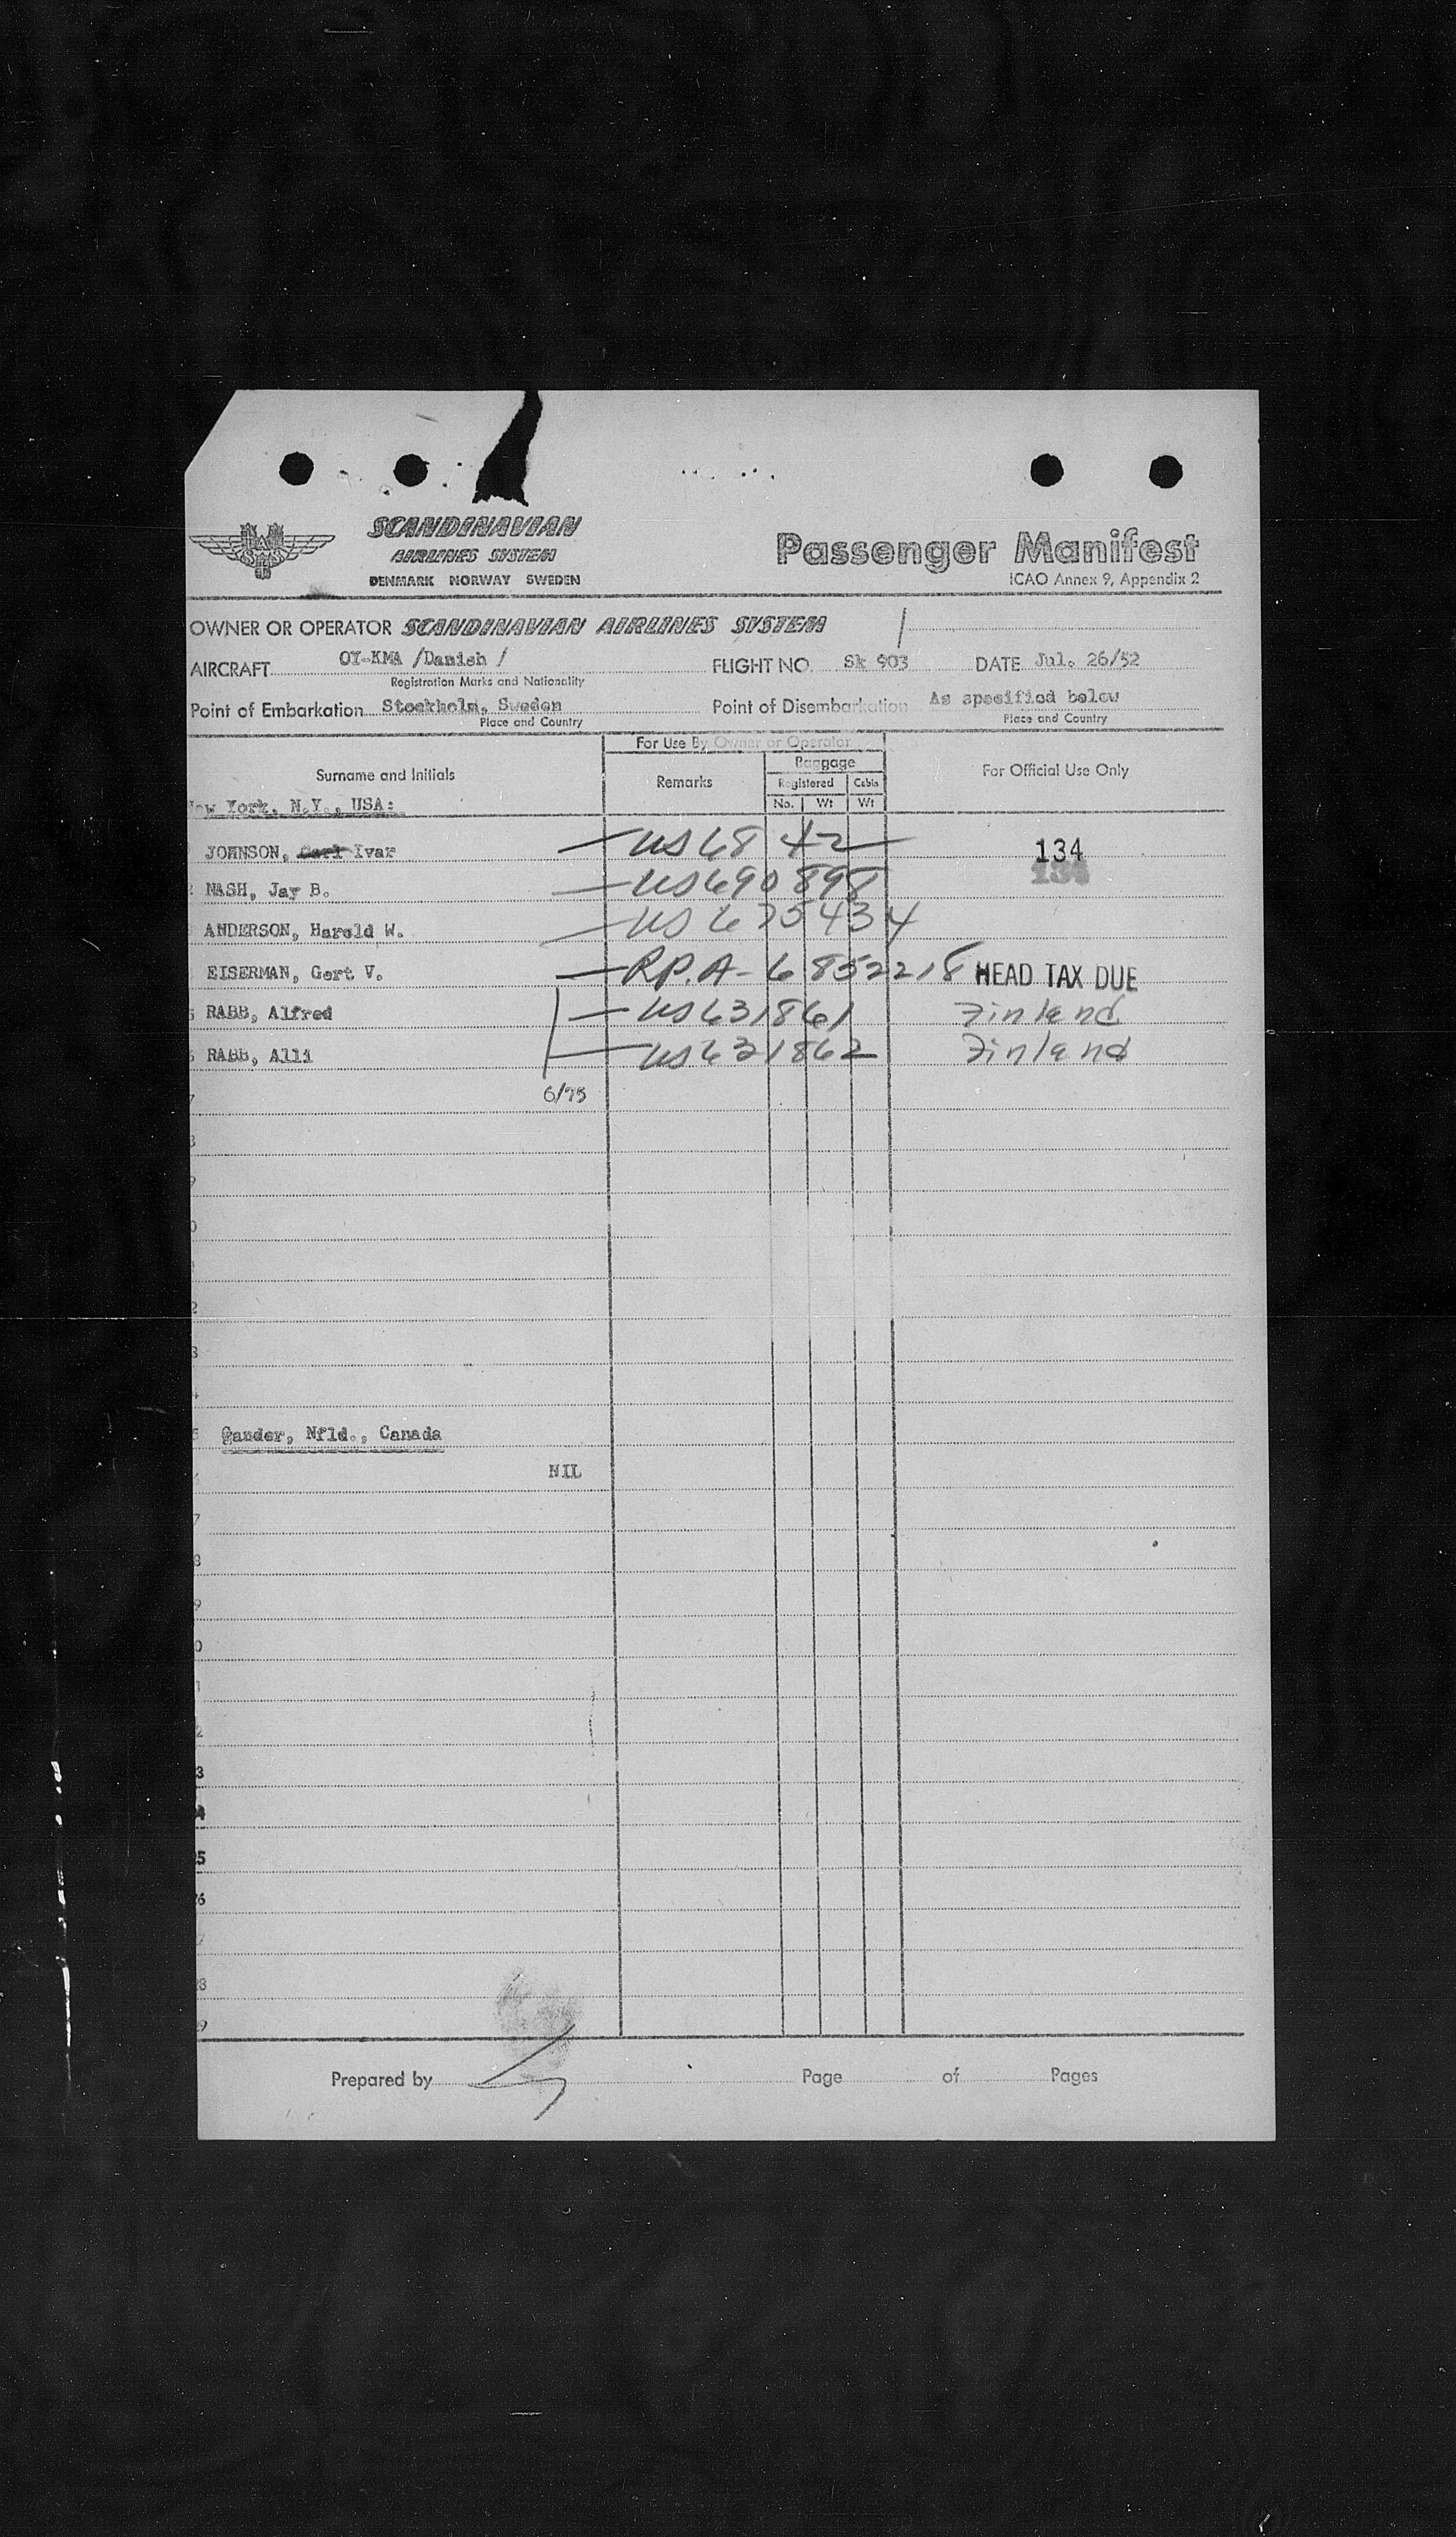 SCANDINAVIAN
AIRLINES SYSTEM
DENMARK NORWAY SWEDEN
Passenger Manifest
ICAO Annex 9, Appendix 2
OWNER OR OPERATOR SCANDINAVIAN AIRLINES SYSTEM
AIRCRAFT OY-KMA /Danish / FLIGHT NO. Sk 903 DATE Jul. 26/52
Registration Marks and Nationality
Point of Embarkation Stockholm, Sweden Point of Disembarkation As specified below
Place and Country Place and Country
For Use By Owner or Operator
Surname and Initials Remarks Baggage For Official Use Only
Registered Cabin
No. Wt Wt
New York, N.Y., USA:
JOHNSON, Carl Ivar US 68 42 134
134
2 NASH, Jay B. US 690898
ANDERSON, Harold W. US 675434
EISERMAN, Gert V. R.P.A- 6852218 HEAD TAX DUE
5 RABB, Alfred US 631861 Finland
6 RABB, Alli US 631862 Finland
6/75
7
8
9
0
1
2
3
4
5 Gander, Nfld., Canada
6 NIL
7
8
9
0
1
2
3
4
5
26
28
29
Prepared by Page of Pages